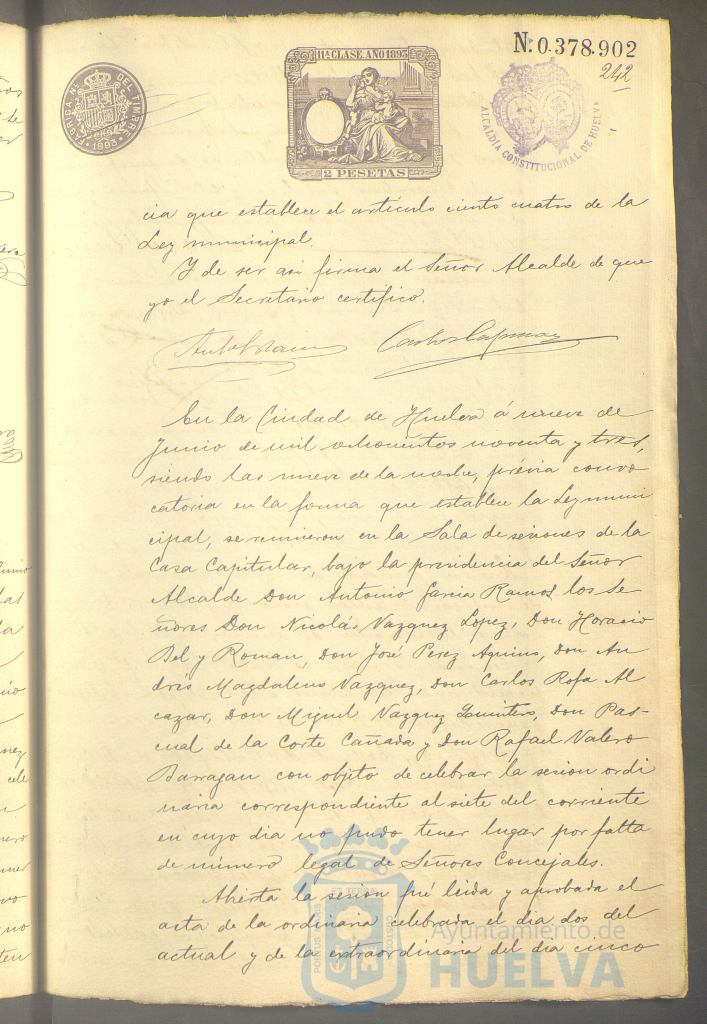 11ª CLASE. AÑO 1893
2 PESETAS
FÁBRICA NAL. DEL TIMBRE
1893
N.º 0.378.902
242
ALCALDÍA CONSTITUCIONAL DE HUELVA
cia que establece el artículo ciento cuatro de la
Ley municipal.
Y de ser asi firma el Señor Alcalde de que
yo el Secretario certifico.
En la Ciudad de Huelva á nueve de
Junio de mil ochocientos noventa y tres,
siendo las nueve de la noche, prévia convo
catoria en la forma que establece la Ley muni
cipal, se reunieron en la Sala de sesiones de la
Casa Capitular, bajo la presidencia del Señor
Alcalde Don Antonio Garcia Ramos los Se
ñores Don Nicolás Vazquez Lopez, Don Horacio
Bel y Roman, Don José Perez Aquino, Don An
drés Magdaleno Vazquez, Don Carlos Rofa Al
cazar, Don Miguel Vazquez Quintero, Don Pas-
cual de la Corte Cañada y Don Rafael Valero
Barragan con objeto de celebrar la sesion ordi
naria correspondiente al siete del corriente
en cuyo dia no pudo tener lugar por falta
de número legal de Señores Concejales.
Abierta la sesion fué leida y aprobada el
acta de la ordinaria celebrada el dia dos del
actual y de la extraordinaria del dia cinco
Ayuntamiento de
HUELVA